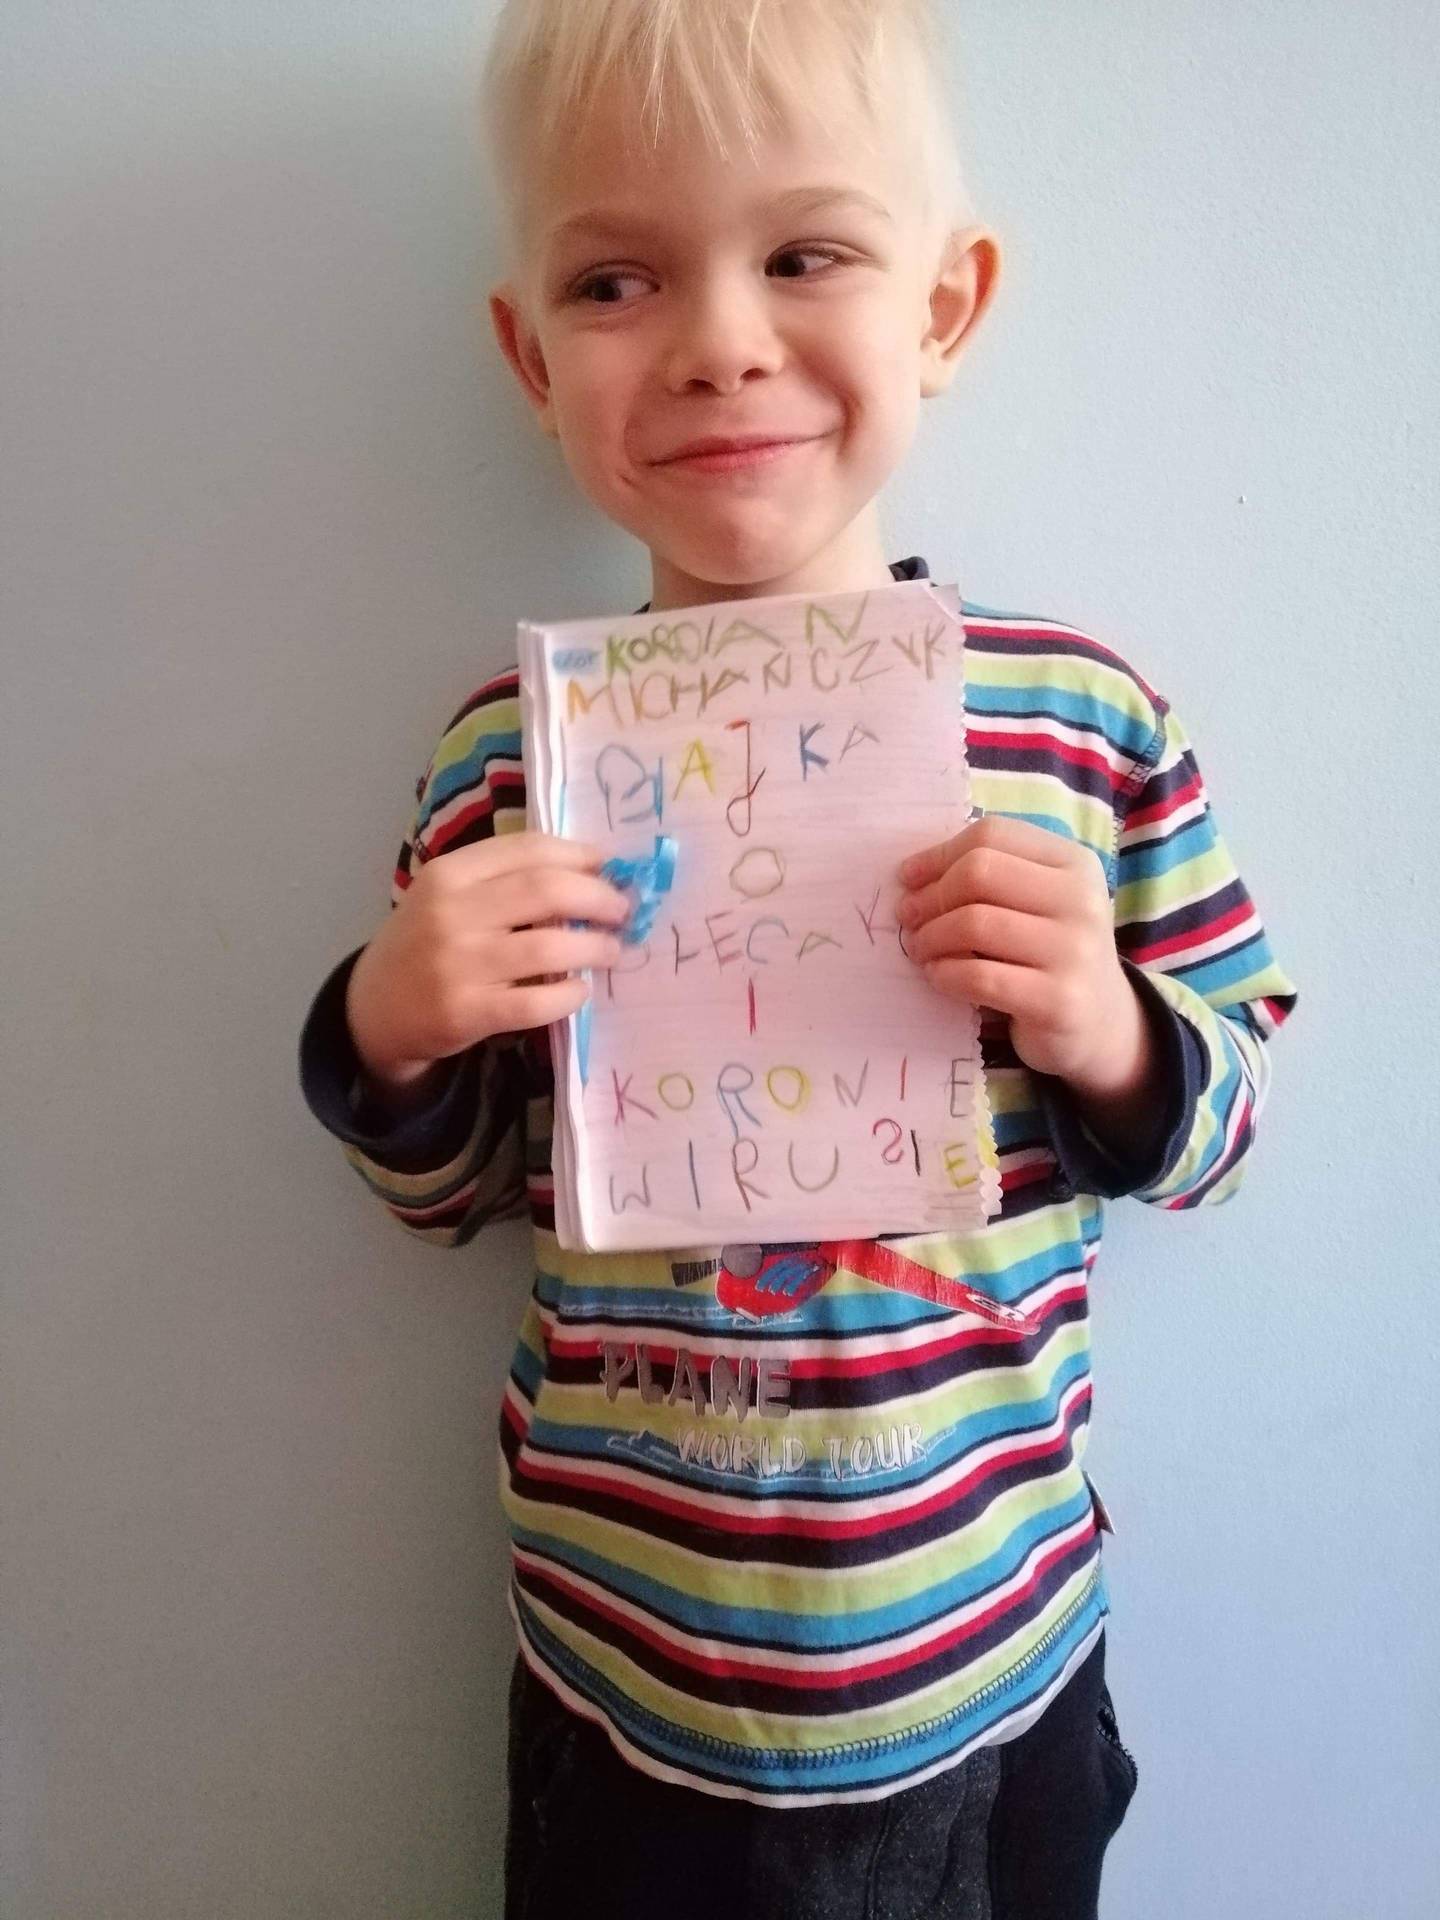 autor KORDIAN
MICHAŃCZYK
BAJKA
O
PLECAKU
I
KORONIE
WIRUSIE
PLANE
WORLD TOUR